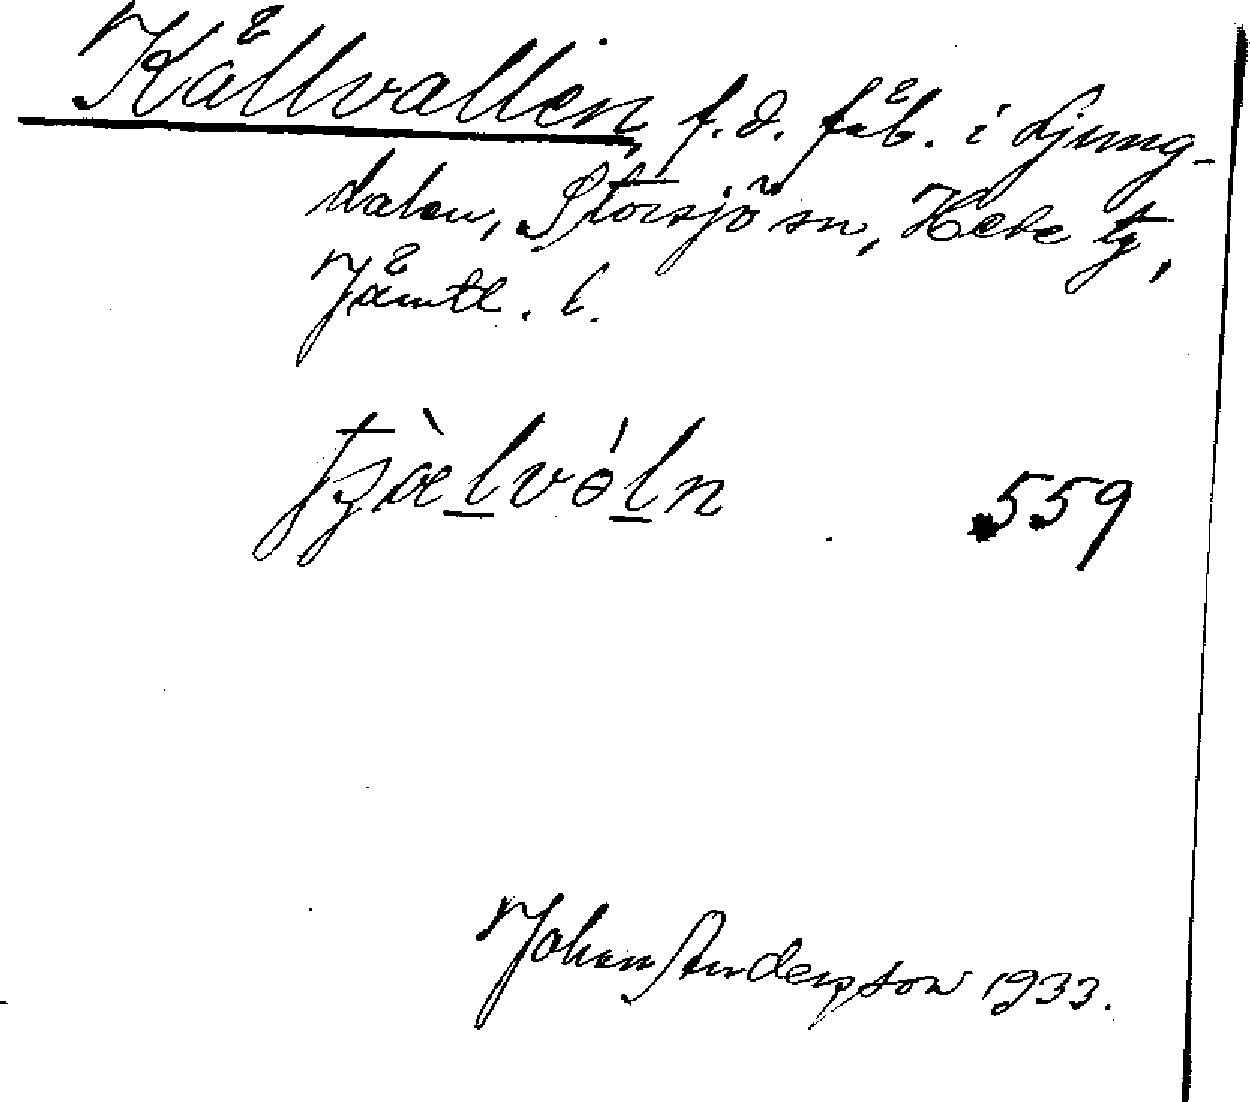 Källvallen, f.d. fäb. i Ljung-
dalen, Storsjö sn, Hede tg,
Jämtl. l.
559
Johan Andersson 1933.